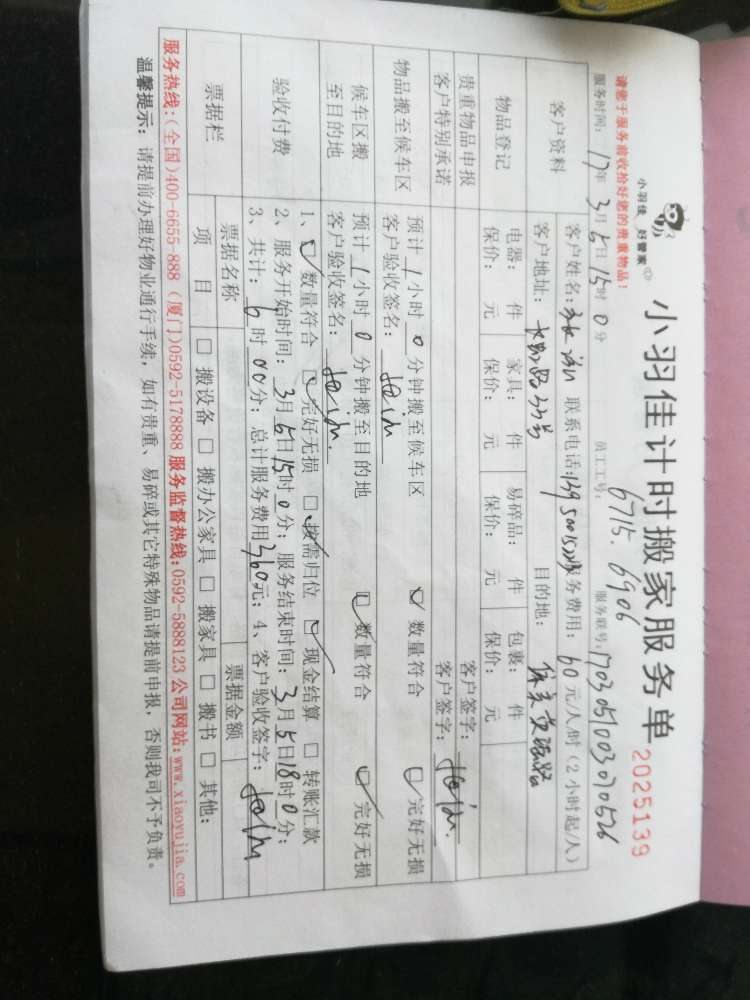 小羽佳 好管家
小羽佳计时搬家服务单
2025139
请您于服务前收拾好您的贵重物品！
服务时间：17年3月5日15时0分 员工工号：6715. 6906 服务联号：
客户资料
客户姓名： 联系电话： 服务费用：60元/人/时（2小时起/人）
客户地址： 目的地：
物品登记
电器： 件 家具： 件 易碎品： 件 包裹： 件
保价： 元 保价： 元 保价： 元 保价： 元
贵重物品申报 客户签字：
客户特别承诺 客户签字：
物品搬至候车区
预计1小时0分钟搬至候车区 数量符合 完好无损
客户验收签名：
候车区搬至目的地
预计1小时0分钟搬至目的地 数量符合 完好无损
客户验收签名：
验收付费
1、数量符合 完好无损 按需归位 现金结算 转账汇款
2、服务开始时间：3月5日15时0分；服务结束时间：3月5日18时0分；
3、共计：6时00分；总计服务费用360元；4、客户验收签字：
票据栏
票据名称 票据金额
项 目 搬设备 搬办公家具 搬家具 搬书 其他：
服务热线：（全国）400-6655-888（厦门）0592-5178888 服务监督热线：0592-5888123 公司网站：www.xiaoyujia.com
温馨提示：请提前办理好物业通行手续，如有贵重、易碎或其它特殊物品请提前申报，否则我司不予负责。